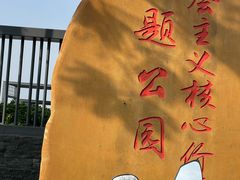 会主义核心价
题公园